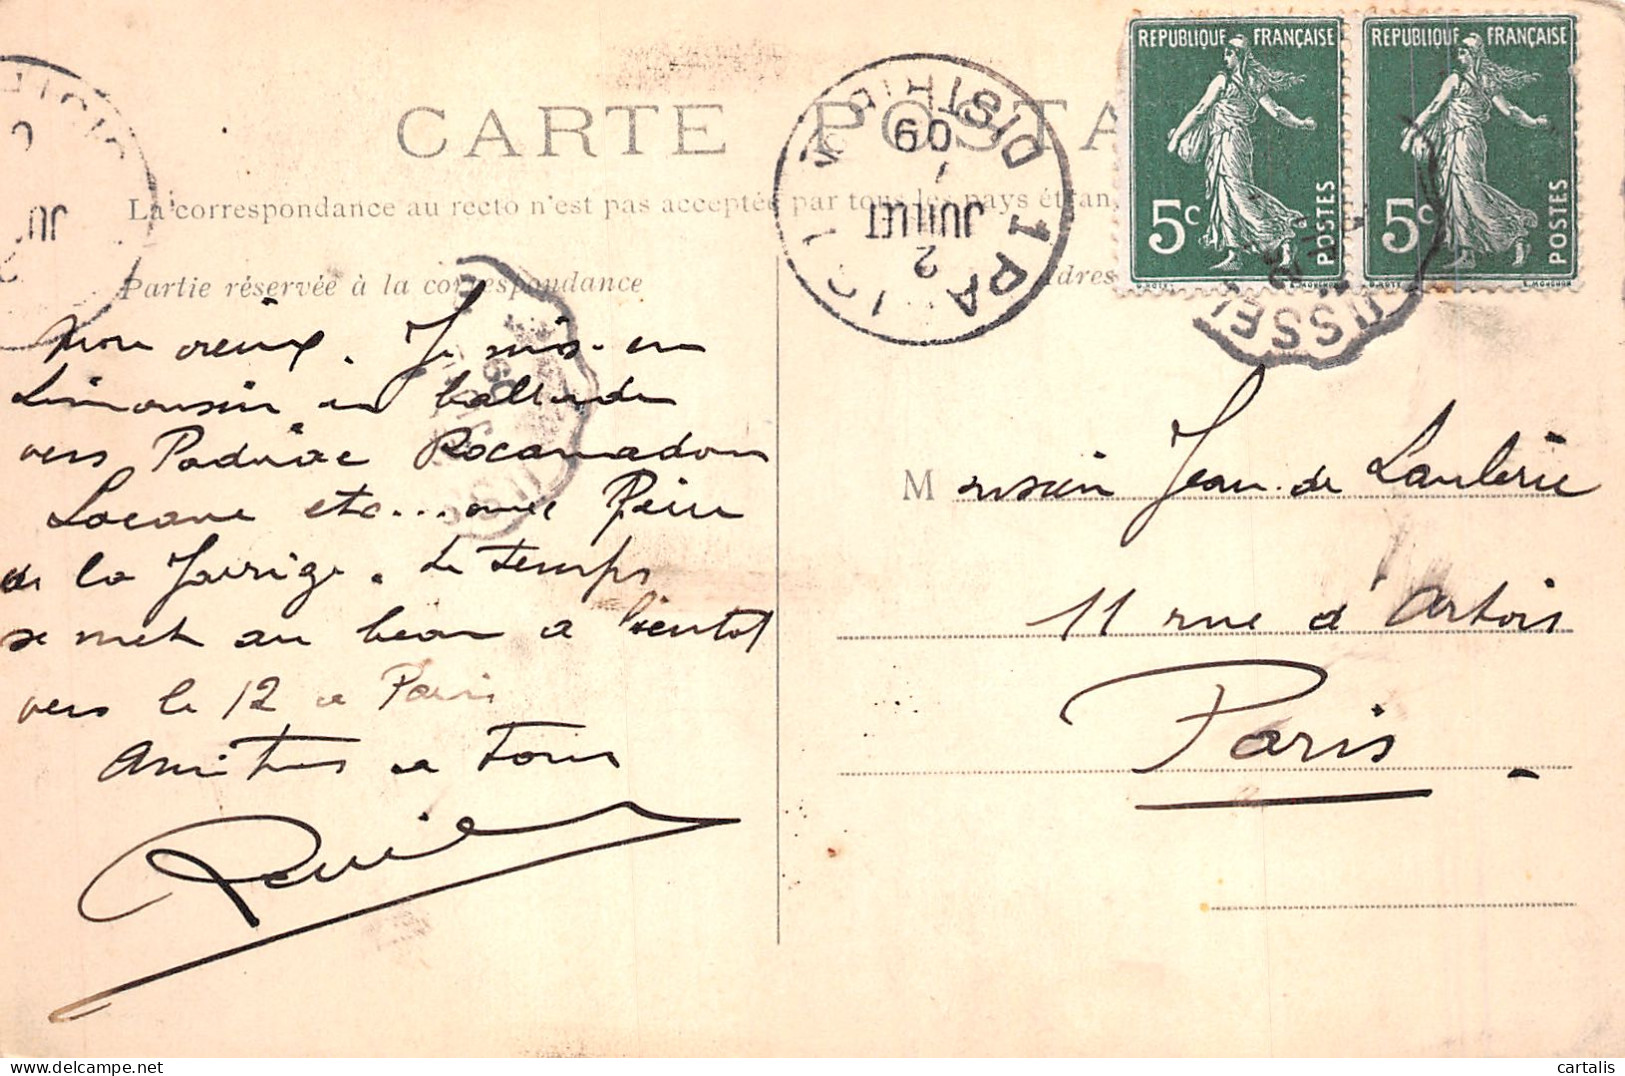 CARTE POSTA
La correspondance au recto n'est pas acceptée par tous les pays étran
Partie réservée à la correspondance
adres
REPUBLIQUE FRANÇAISE
5c
POSTES
REPUBLIQUE FRANÇAISE
5c
POSTES
PARIS
DISTRIB
09
JUILLET
2
USSEL
Mon vieux. Je suis en
Limousin en ballade
vers Padirac Rocamadour
Lacave etc... avec
de la Jarrige. Le temps
se met au beau a bientot
vers le 12 a Paris
Amitiés a tous
Monsieur Jean de Laulerie
11 rue d'Artois
Paris
cartalis